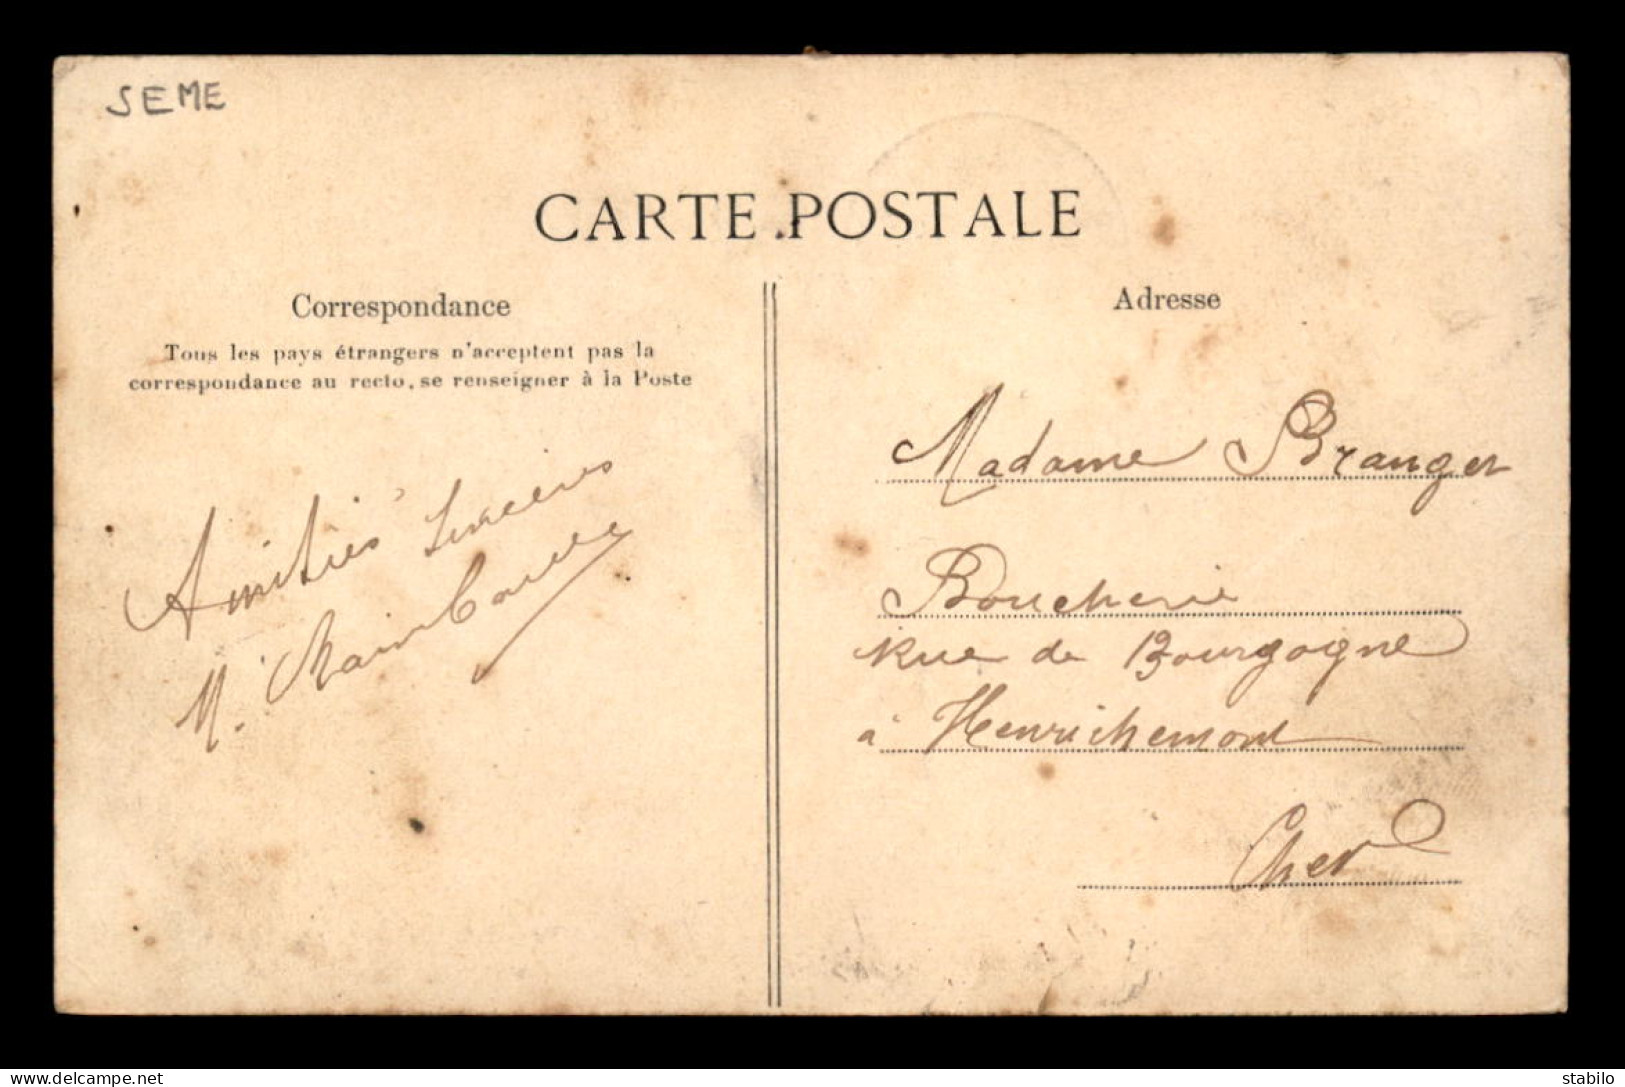 SEME
CARTE POSTALE
Correspondance
Tous les pays étrangers n'acceptent pas la
correspondance au recto, se renseigner à la Poste
Amitiés sincères
M.
Adresse
Madame Branger
Boucherie
Rue de Bourgogne
à Henrichemont
Cher
www.delcampe.net
stabilo